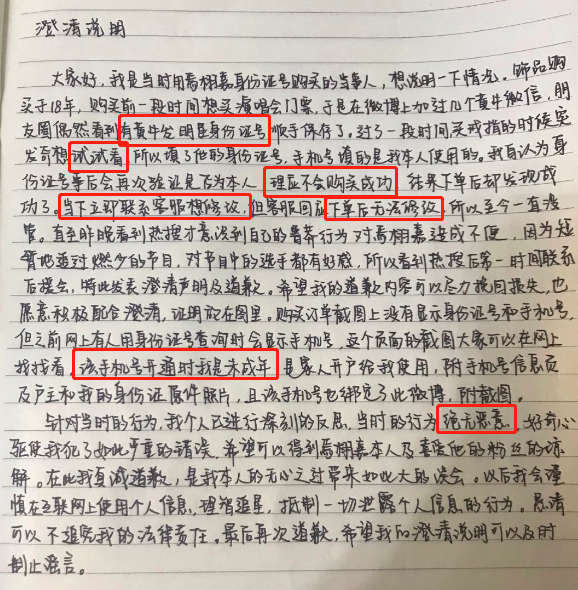 澄清说明
大家好，我是当时用焉栩嘉身份证号购买的当事人，想说明一下情况。饰品购
买于18年，购买前一段时间想买演唱会门票，于是在微博上加过几个黄牛微信，朋
友圈偶然看到有黄牛发明星身份证号顺手保存了。过了一段时间买戒指的时候突
发奇想试试看，所以填了他的身份证号，手机号填的是我本人使用的。我自认为身
份证号单后会再次验证是否为本人，理应不会购买成功，结果下单后却发现成
功了。当下立即联系客服想修改，但客服回应下单后无法修改，所以至今一直没
管。直至昨晚看到热搜才意识到自己的鲁莽行为对焉栩嘉造成不便，因为短
暂地追过燃少的节目，对节目中的选手都有好感，所以看到热搜后第一时间联系
后援会，特此发表澄清声明及道歉。希望我的道歉内容可以尽力挽回损失，也
愿意积极配合澄清，证明放在图里。购买订单截图上没有显示身份证号和手机号，
但之前网上有人用身份证号查询时会显示手机号，这个页面的截图大家可以在网上
找找看，该手机号开通时我是未成年，是家人开户给我使用，附手机号信息页
及户主和我的身份证原件照片，且该手机号也绑定了此微博，附截图。
针对当时的行为，我个人已进行深刻的反思，当时的行为绝无恶意，好奇心
驱使我犯了如此严重的错误，希望可以得到焉栩嘉本人及喜爱他的粉丝的谅
解。在此我真诚道歉，是我本人的无心之过带来如此大的误会。以后我会谨
慎在互联网上使用个人信息，理智追星，抵制一切泄露个人信息的行为。恳请
可以不追究我的法律责任。最后再次道歉，希望我的澄清说明可以及时
制止谣言。